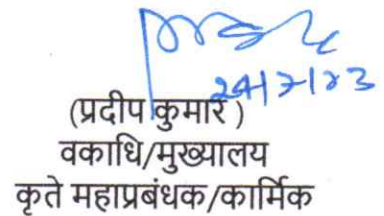 24/7/23
(प्रदीप कुमार )
वकाधि/मुख्यालय
कृते महाप्रबंधक/कार्मिक